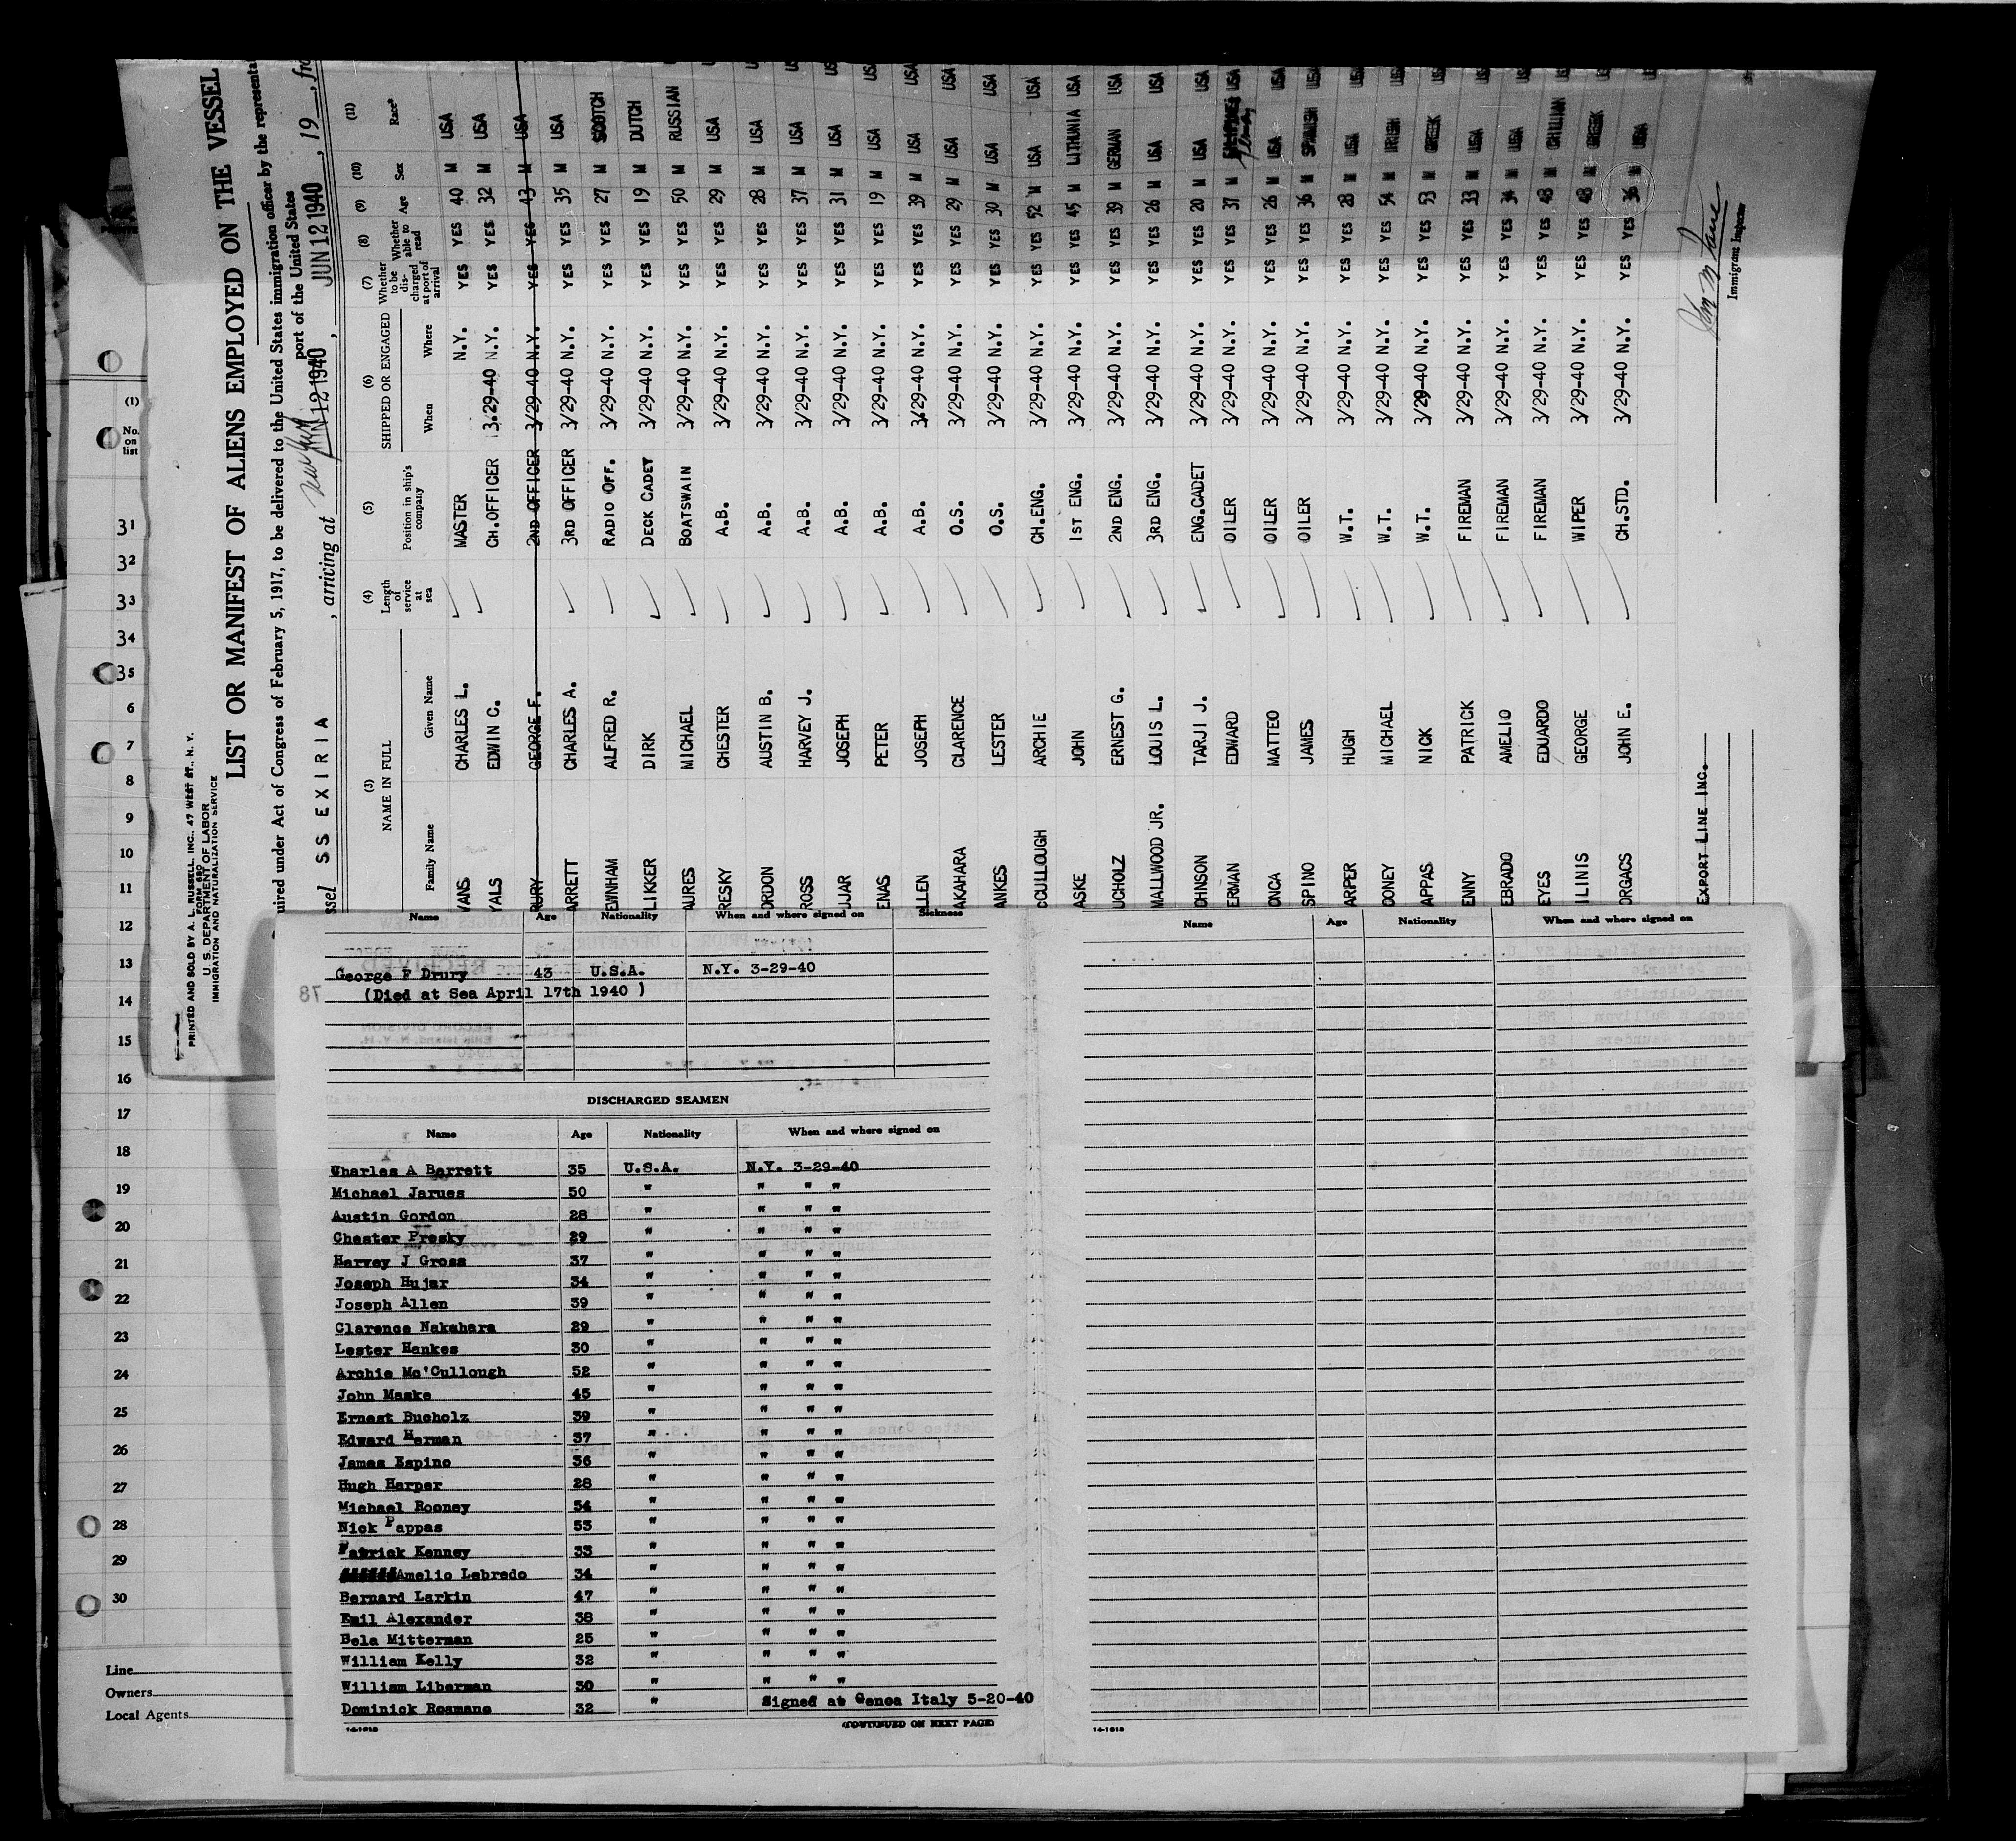 PRINTED AND SOLD BY A. L. RUSSELL, INC., 47 WEST ST., N. Y.
FORM 680
U. S. DEPARTMENT OF LABOR
IMMIGRATION AND NATURALIZATION SERVICE
LIST OR MANIFEST OF ALIENS EMPLOYED ON THE VESSEL
uired under Act of Congress of February 5, 1917, to be delivered to the United States immigration officer by the representa
port of the United States
ssel SS EXIRIA, arriving at JUN 12 1940, JUN 12 1940, 19, fro
(3) (4) (5) (6) (7) (8) (9) (10) (11)
NAME IN FULL Length of service at sea Position in ship's company SHIPPED OR ENGAGED Whether to be discharged at port of arrival Whether able to read Age Sex Race*
Family Name Given Name When Where
VANS CHARLES L. MASTER N.Y. YES YES 40 M USA
YALS EDWIN C. CH.OFFICER 3.29-40 N.Y. YES YES 32 M USA
RURY GEORGE F. 2ND OFFICER 3/29-40 N.Y. YES YES 43 M USA
ARRETT CHARLES A. 3RD OFFICER 3/29-40 N.Y. YES YES 35 M USA
EWNHAM ALFRED R. RADIO OFF. 3/29-40 N.Y. YES YES 27 M SCOTCH
LIKKER DIRK DECK CADET 3/29-40 N.Y. YES YES 19 M DUTCH
AURES MICHAEL BOATSWAIN 3/29-40 N.Y. YES YES 50 M RUSSIAN
RESKY CHESTER A.B. 3/29-40 N.Y. YES YES 29 M USA USA
ORDON AUSTIN B. A.B. 3/29-40 N.Y. YES YES 28 M USA USA
ROSS HARVEY J. A.B. 3/29-40 N.Y. YES YES 37 M USA USA
UJJAR JOSEPH A.B. 3/29-40 N.Y. YES YES 31 M USA USA
ENAS PETER A.B. 3/29-40 N.Y. YES YES 19 M USA USA
LLEN JOSEPH A.B. 3/29-40 N.Y. YES YES 39 M USA USA
AKAHARA CLARENCE O.S. 3/29-40 N.Y. YES YES 29 M USA USA
ANKES LESTER O.S. 3/29-40 N.Y. YES YES 30 M USA USA
CCULLOUGH ARCHIE CH.ENG. 3/29-40 N.Y. YES YES 52 M USA USA
ASKE JOHN 1ST ENG. 3/29-40 N.Y. YES YES 45 M LITHUNIA USA
UCHOLZ ERNEST G. 2ND ENG. 3/29-40 N.Y. YES YES 39 M GERMAN USA
MALLWOOD JR. LOUIS L. 3RD ENG. 3/29-40 N.Y. YES YES 26 M USA USA
OHNSON TARJI J. ENG.CADET 3/29-40 N.Y. YES YES 20 M USA USA
ERMAN EDWARD OILER 3/29-40 N.Y. YES YES 37 M USA
ONCA MATTEO OILER 3/29-40 N.Y. YES YES 26 M USA USA
SPINO JAMES OILER 3/29-40 N.Y. YES YES 36 M SPANISH USA
ARPER HUGH W.T. 3/29-40 N.Y. YES YES 28 M USA USA
OONEY MICHAEL W.T. 3/29-40 N.Y. YES YES 54 M IRISH USA
APPAS NICK W.T. 3/29-40 N.Y. YES YES 53 M GREEK USA
ENNY PATRICK FIREMAN 3/29-40 N.Y. YES YES 33 M USA USA
EBRADO AMELIO FIREMAN 3/29-40 N.Y. YES YES 34 M USA USA
EYES EDUARDO FIREMAN 3/29-40 N.Y. YES YES 48 M CHILLIAN USA
ILINIS GEORGE WIPER 3/29-40 N.Y. YES YES 48 M GREEK USA
ORGACS JOHN E. CH.STD. 3/29-40 N.Y. YES YES 36 M USA
EXPORT LINE INC.
Immigrant Inspector
(1)
No. on list
31
32
33
34
35
6
7
8
9
10
11
12
13
14
15
16
17
18
19
20
21
22
23
24
25
26
27
28
29
30
Line
Owners
Local Agents
78
Name Age Nationality When and where signed on Sickness
George F Drury 43 U.S.A. N.Y. 3-29-40
(Died at Sea April 17th 1940 )
DISCHARGED SEAMEN
Name Age Nationality When and where signed on
Wharles A Barrett 35 U.S.A. N.Y. 3-29-40
Michael Jarues 50 " " " "
Austin Gordon 28 " " " "
Chester Presky 29 " " " "
Harvey J Gross 37 " " " "
Joseph Hujar 34 " " " "
Joseph Allen 39 " " " "
Clarence Nakahara 29 " " " "
Lester Hankes 30 " " " "
Archie Mc'Cullough 52 " " " "
John Maske 45 " " " "
Ernest Bucholz 39 " " " "
Edward Herman 37 " " " "
James Espino 36 " " " "
Hugh Harper 28 " " " "
Michael Rooney 54 " " " "
Nick Pappas 53 " " " "
Patrick Kenney 33 " " " "
Amelio Lebredo 34 " " " "
Bernard Larkin 47 " " " "
Emil Alexander 38 " " " "
Bela Mitterman 25 " " " "
William Kelly 32 " " " "
William Liberman 30 " " " "
Dominick Rosmano 32 " Signed at Genoa Italy 5-20-40
14-1613 (CONTINUED ON NEXT PAGE)
Name Age Nationality When and where signed on
14-1613